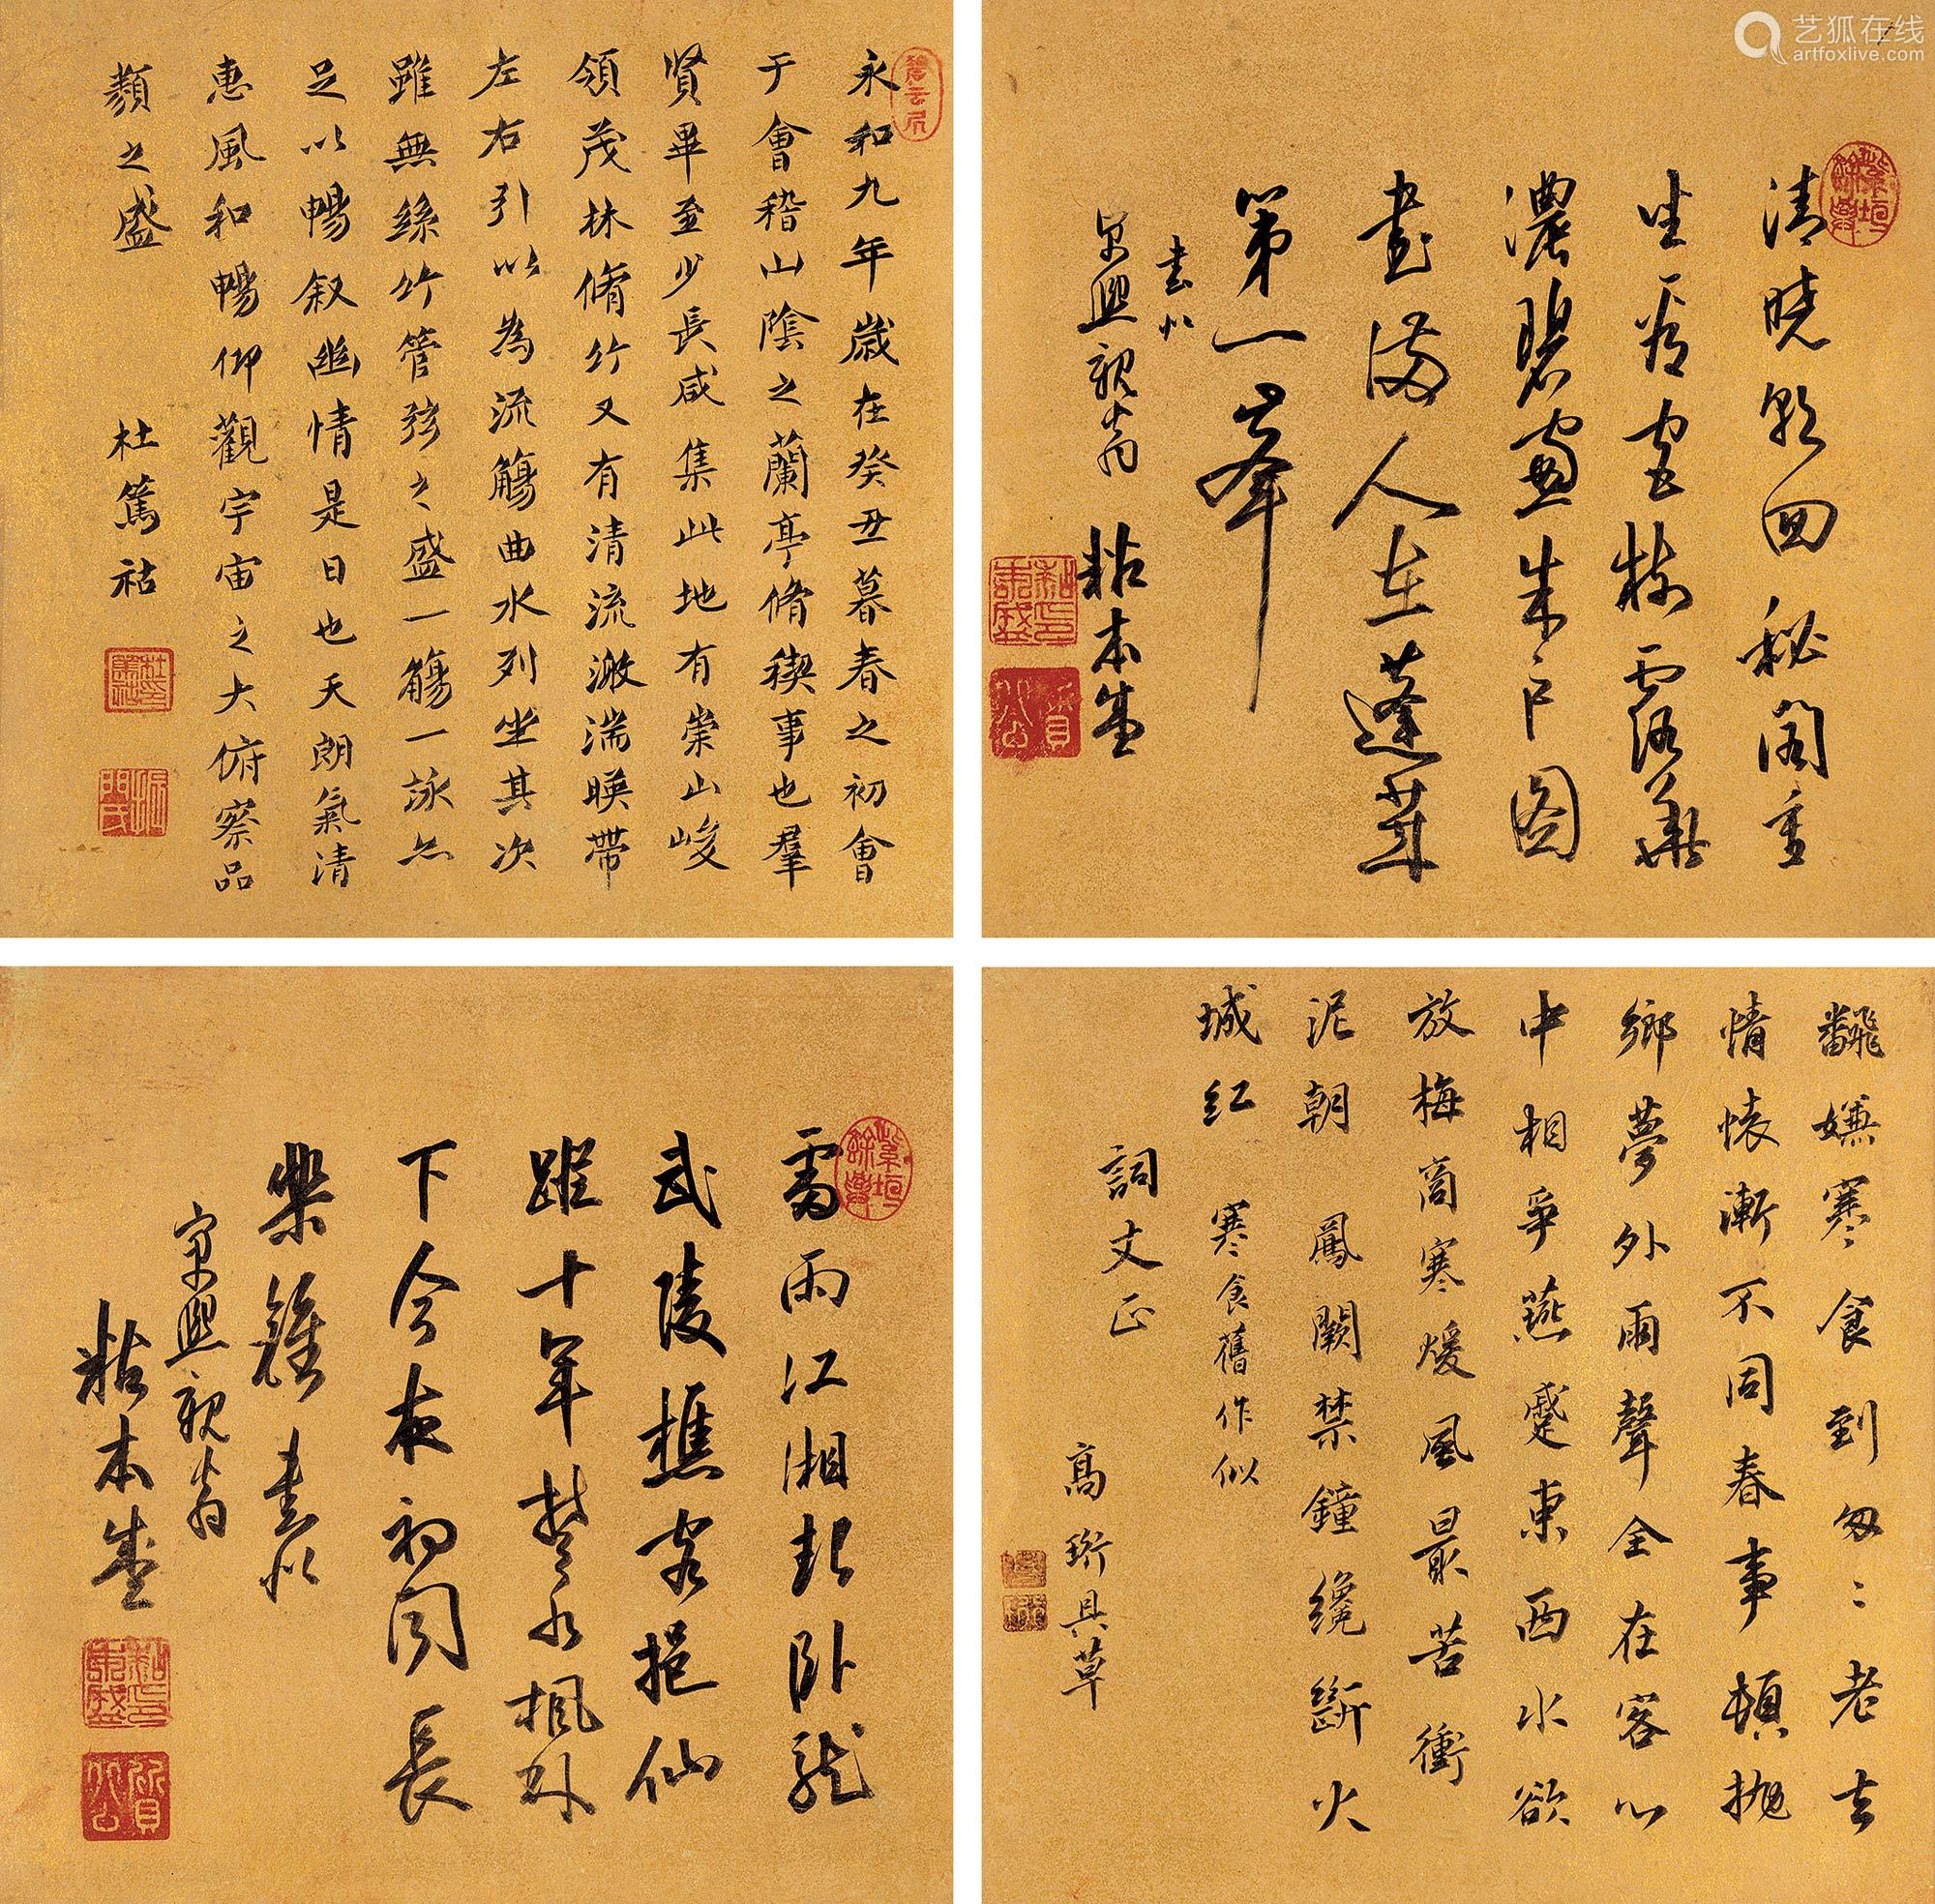 艺狐在线
artfoxlive.com
清曉朝回秘閣重
坐看宮樹露華
濃碧窗朱戶圖
書滿人在蓬萊
第一峯
書似
宗興親翁 粘本盛
永和九年歲在癸丑暮春之初會
于會稽山陰之蘭亭脩稧事也羣
賢畢至少長咸集此地有崇山峻
領茂林脩竹又有清流激湍暎帶
左右引以為流觴曲水列坐其次
雖無絲竹管弦之盛一觴一詠亦
足以暢敘幽情是日也天朗氣清
惠風和暢仰觀宇宙之大俯察品
類之盛 杜篤祜
飜嫌寒食到匆匆老去
情懷漸不同春事頓拋
鄉夢外雨聲全在客心
中相爭燕蹙東西水欲
放梅商寒煖風最苦衝
泥朝鳳闕禁鐘纔斷火
城紅 寒食舊作似
詞丈正
高珩具草
雷雨江湘起臥龍
武陵樵客挹仙
蹤十年楚水楓林
下今夜初聞長
樂鐘 書似
宗興親翁
粘本盛